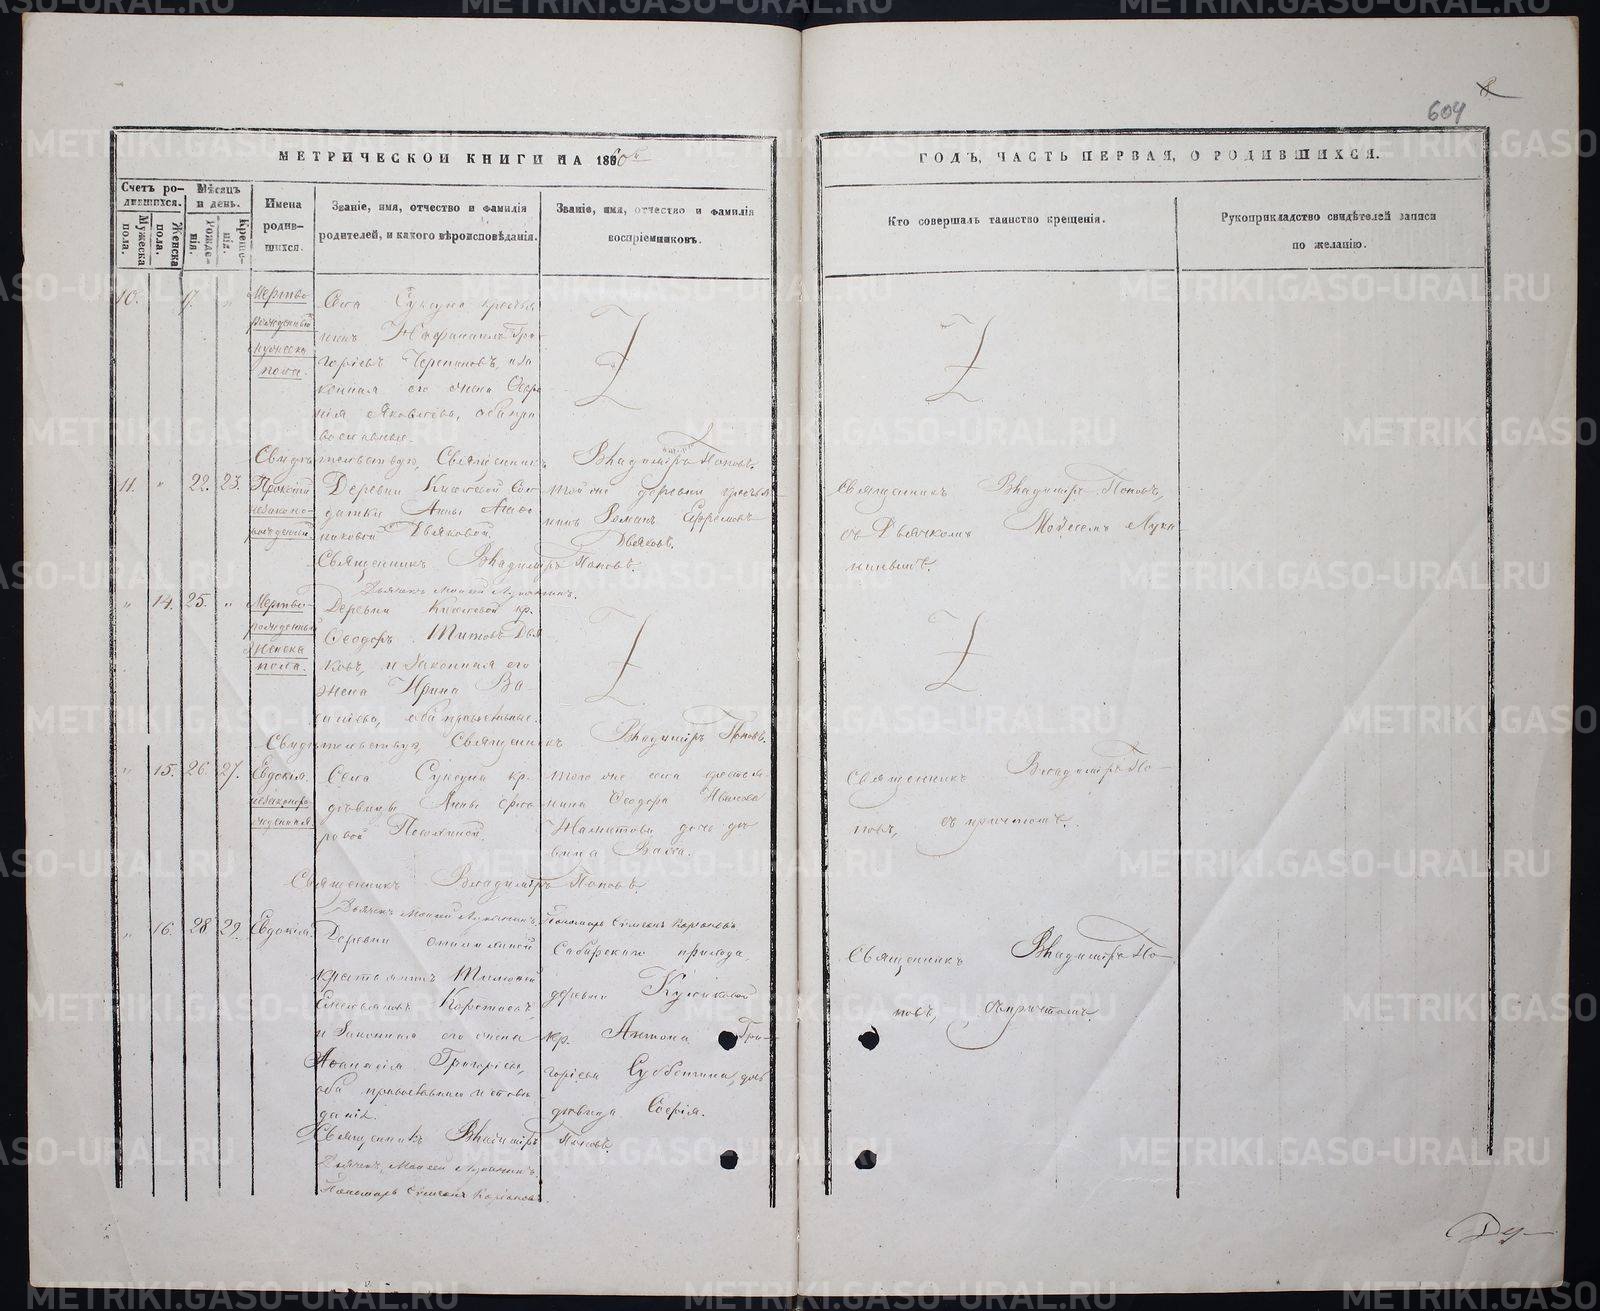 604
МЕТРИЧЕСКОЙ КНИГИ НА 1860й
ГОДЪ, ЧАСТЬ ПЕРВАЯ, О РОДИВШИХСЯ.
Счетъ ро-
дившихся.
Мужеска
пола.
Женска
пола.
Мѣсяцъ
и день.
Рожде-
нія.
Креще-
нія.
Имена
родив-
шихся.
Званіе, имя, отчество и фамилія
родителей, и какого вѣроисповѣданія.
Званіе, имя, отчество и фамилія
воспріемниковъ.
Кто совершалъ таинство крещенія.
Рукоприкладство свидѣтелей записи
по желанію.
10. 17. „
Мертво-
рожденный
мужеска
пола.
Села Суксуна крестья
нинъ
Григорьевъ Черепановъ, и за
конная его жена
Яковлева, оба пра
вославные.
Свидѣтельствую, Священникъ Владиміръ Поповъ.
11. „ 22. 23.
незаконо-
рожденный
Деревни сол
датки Анны
Дьяковой.
той же деревни крестья
нинъ Романъ Ефремовъ
Дьяковъ.
Священникъ Владиміръ Поповъ,
съ Дьячкомъ Моисеемъ Лука
нинымъ.
Священникъ Владиміръ Поповъ.
Дьячекъ Моисей Луканинъ.
„ 14. 25. „
Мертво-
рожденный
женска
пола.
Деревни кр.
Ѳеодоръ Титовъ Дья
ковъ, и законная его
жена Ирина Ва-
сильева, оба православные.
Свидѣтельствую, Священникъ Владиміръ Поповъ.
„ 15. 26. 27.
Евдокія
незаконоро
жденная.
Села Суксуна кр.
дѣвицы Анны
того же села крестья-
нина Ѳеодора Иванова
дочь дѣ
вица Васса.
Священникъ Владиміръ По-
повъ, съ причтомъ.
Священникъ Владиміръ Поповъ.
Дьячекъ Моисей Луканинъ.
„ 16. 28. 29.
Евдокія.
Деревни
крестьянинъ Тимоѳей
Емельяновъ
и законная его жена
Аѳанасія Григорьева,
оба православнаго исповѣ
данія.
Сабарскаго прихода,
деревни
кр. Антона Гри-
горьева Субботина, дочь
дѣвица Софія.
Священникъ Владиміръ По-
повъ, съ причтомъ.
Священникъ Владиміръ Поповъ.
Дьячекъ Моисей Луканинъ.
METRIKI.GASO-URAL.RU